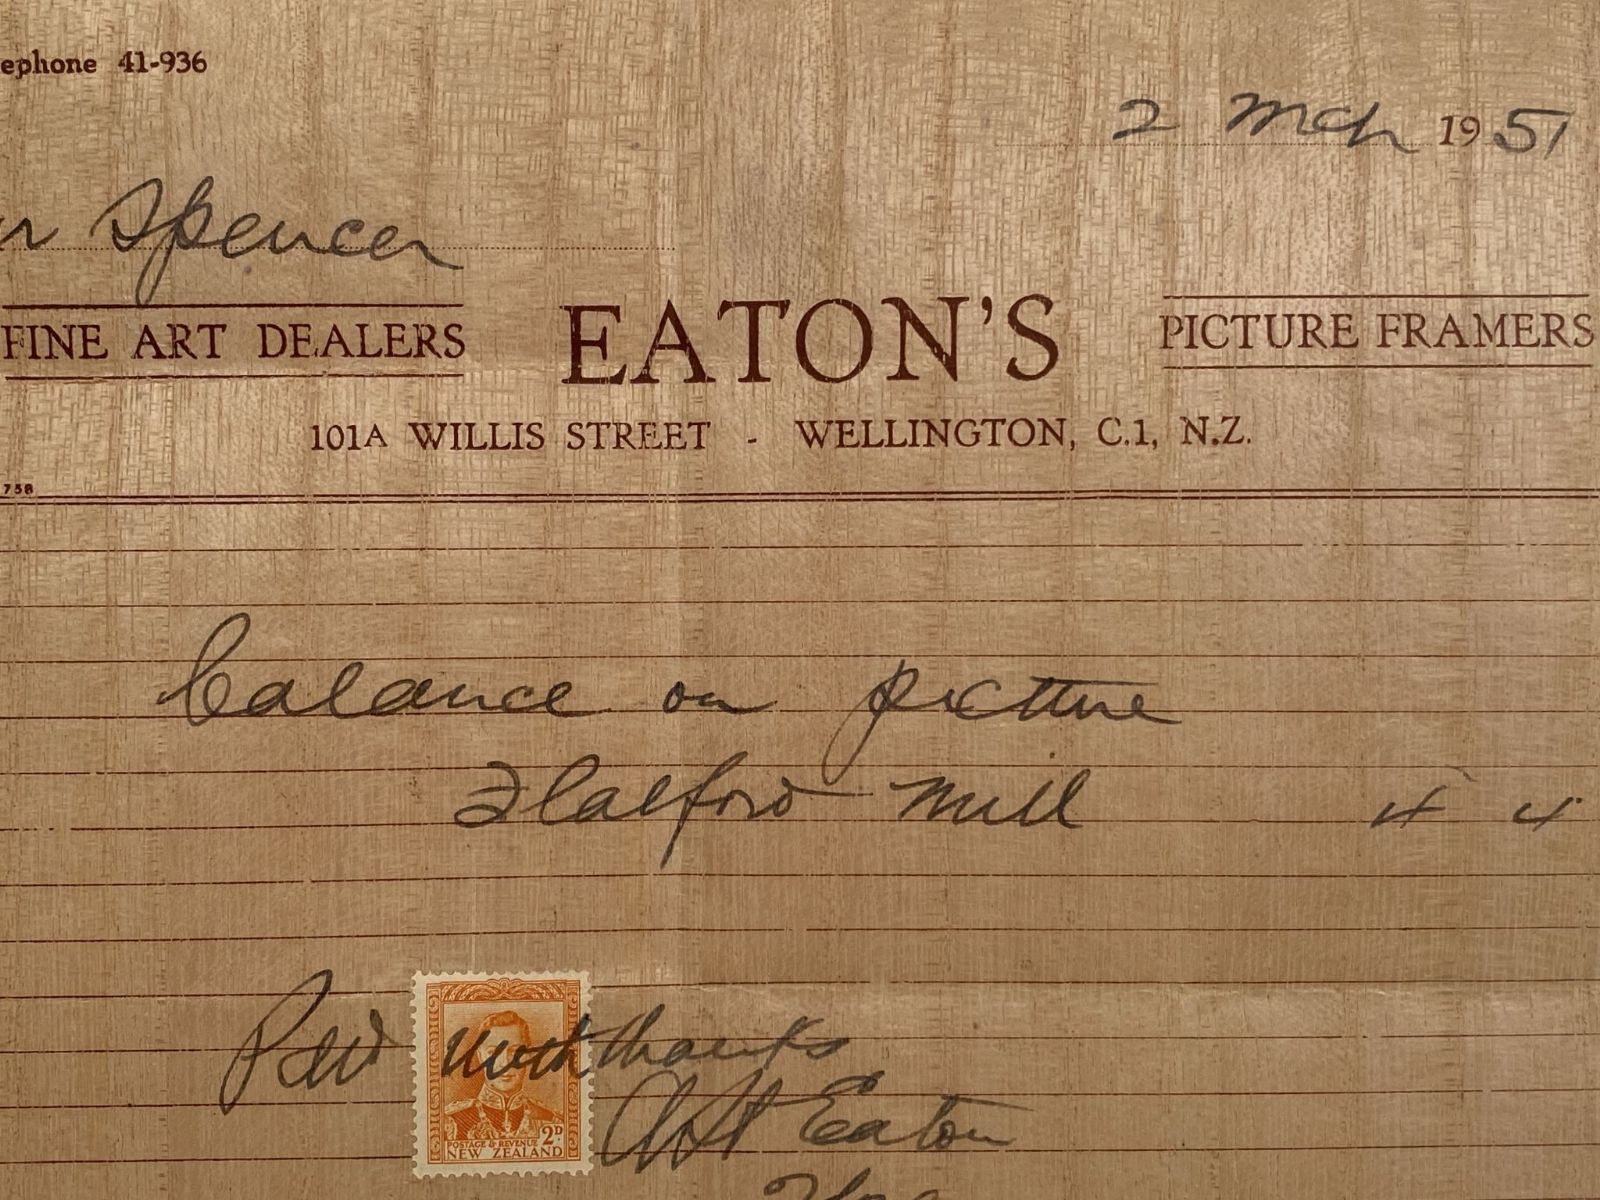 ephone 41-936
2 Mch 1951
r Spencer
FINE ART DEALERS EATON'S PICTURE FRAMERS
101A WILLIS STREET - WELLINGTON, C.1, N.Z.
758
balance on picture
Flatford Mill 4 4
with thanks
Eaton
POSTAGE & REVENUE 2D
NEW ZEALAND